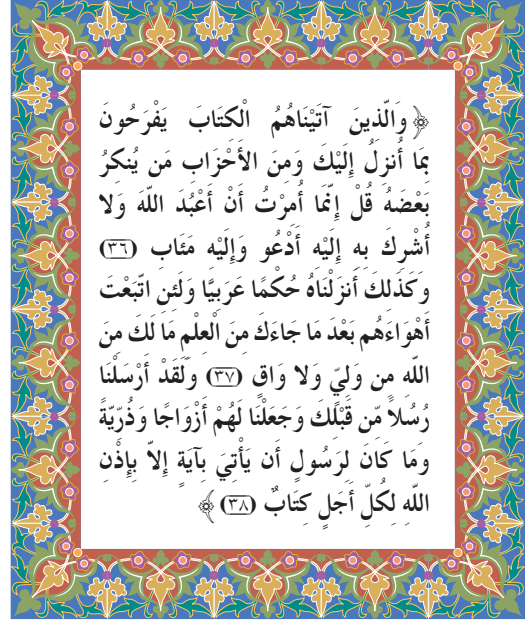 ﴿ وَالَّذِينَ آتَيْنَاهُمُ الْكِتَابَ يَفْرَحُونَ
بِمَا أُنزِلَ إِلَيْكَ وَمِنَ الأَحْزَابِ مَن يُنكِرُ
بَعْضَهُ قُلْ إِنَّمَا أُمِرْتُ أَنْ أَعْبُدَ اللَّهَ وَلا
أُشْرِكَ بِهِ إِلَيْهِ أَدْعُو وَإِلَيْهِ مَئَابِ (٣٦)
وَكَذَلِكَ أَنزَلْنَاهُ حُكْمًا عَرَبِيًّا وَلَئِنِ اتَّبَعْتَ
أَهْوَاءَهُم بَعْدَ مَا جَاءَكَ مِنَ الْعِلْمِ مَا لَكَ مِنَ
اللَّهِ مِن وَلِيٍّ وَلا وَاقٍ (٣٧) وَلَقَدْ أَرْسَلْنَا
رُسُلاً مِّن قَبْلِكَ وَجَعَلْنَا لَهُمْ أَزْوَاجًا وَذُرِّيَّةً
وَمَا كَانَ لِرَسُولٍ أَن يَأْتِيَ بِآيَةٍ إِلاَّ بِإِذْنِ
اللَّهِ لِكُلِّ أَجَلٍ كِتَابٌ (٣٨) ﴾